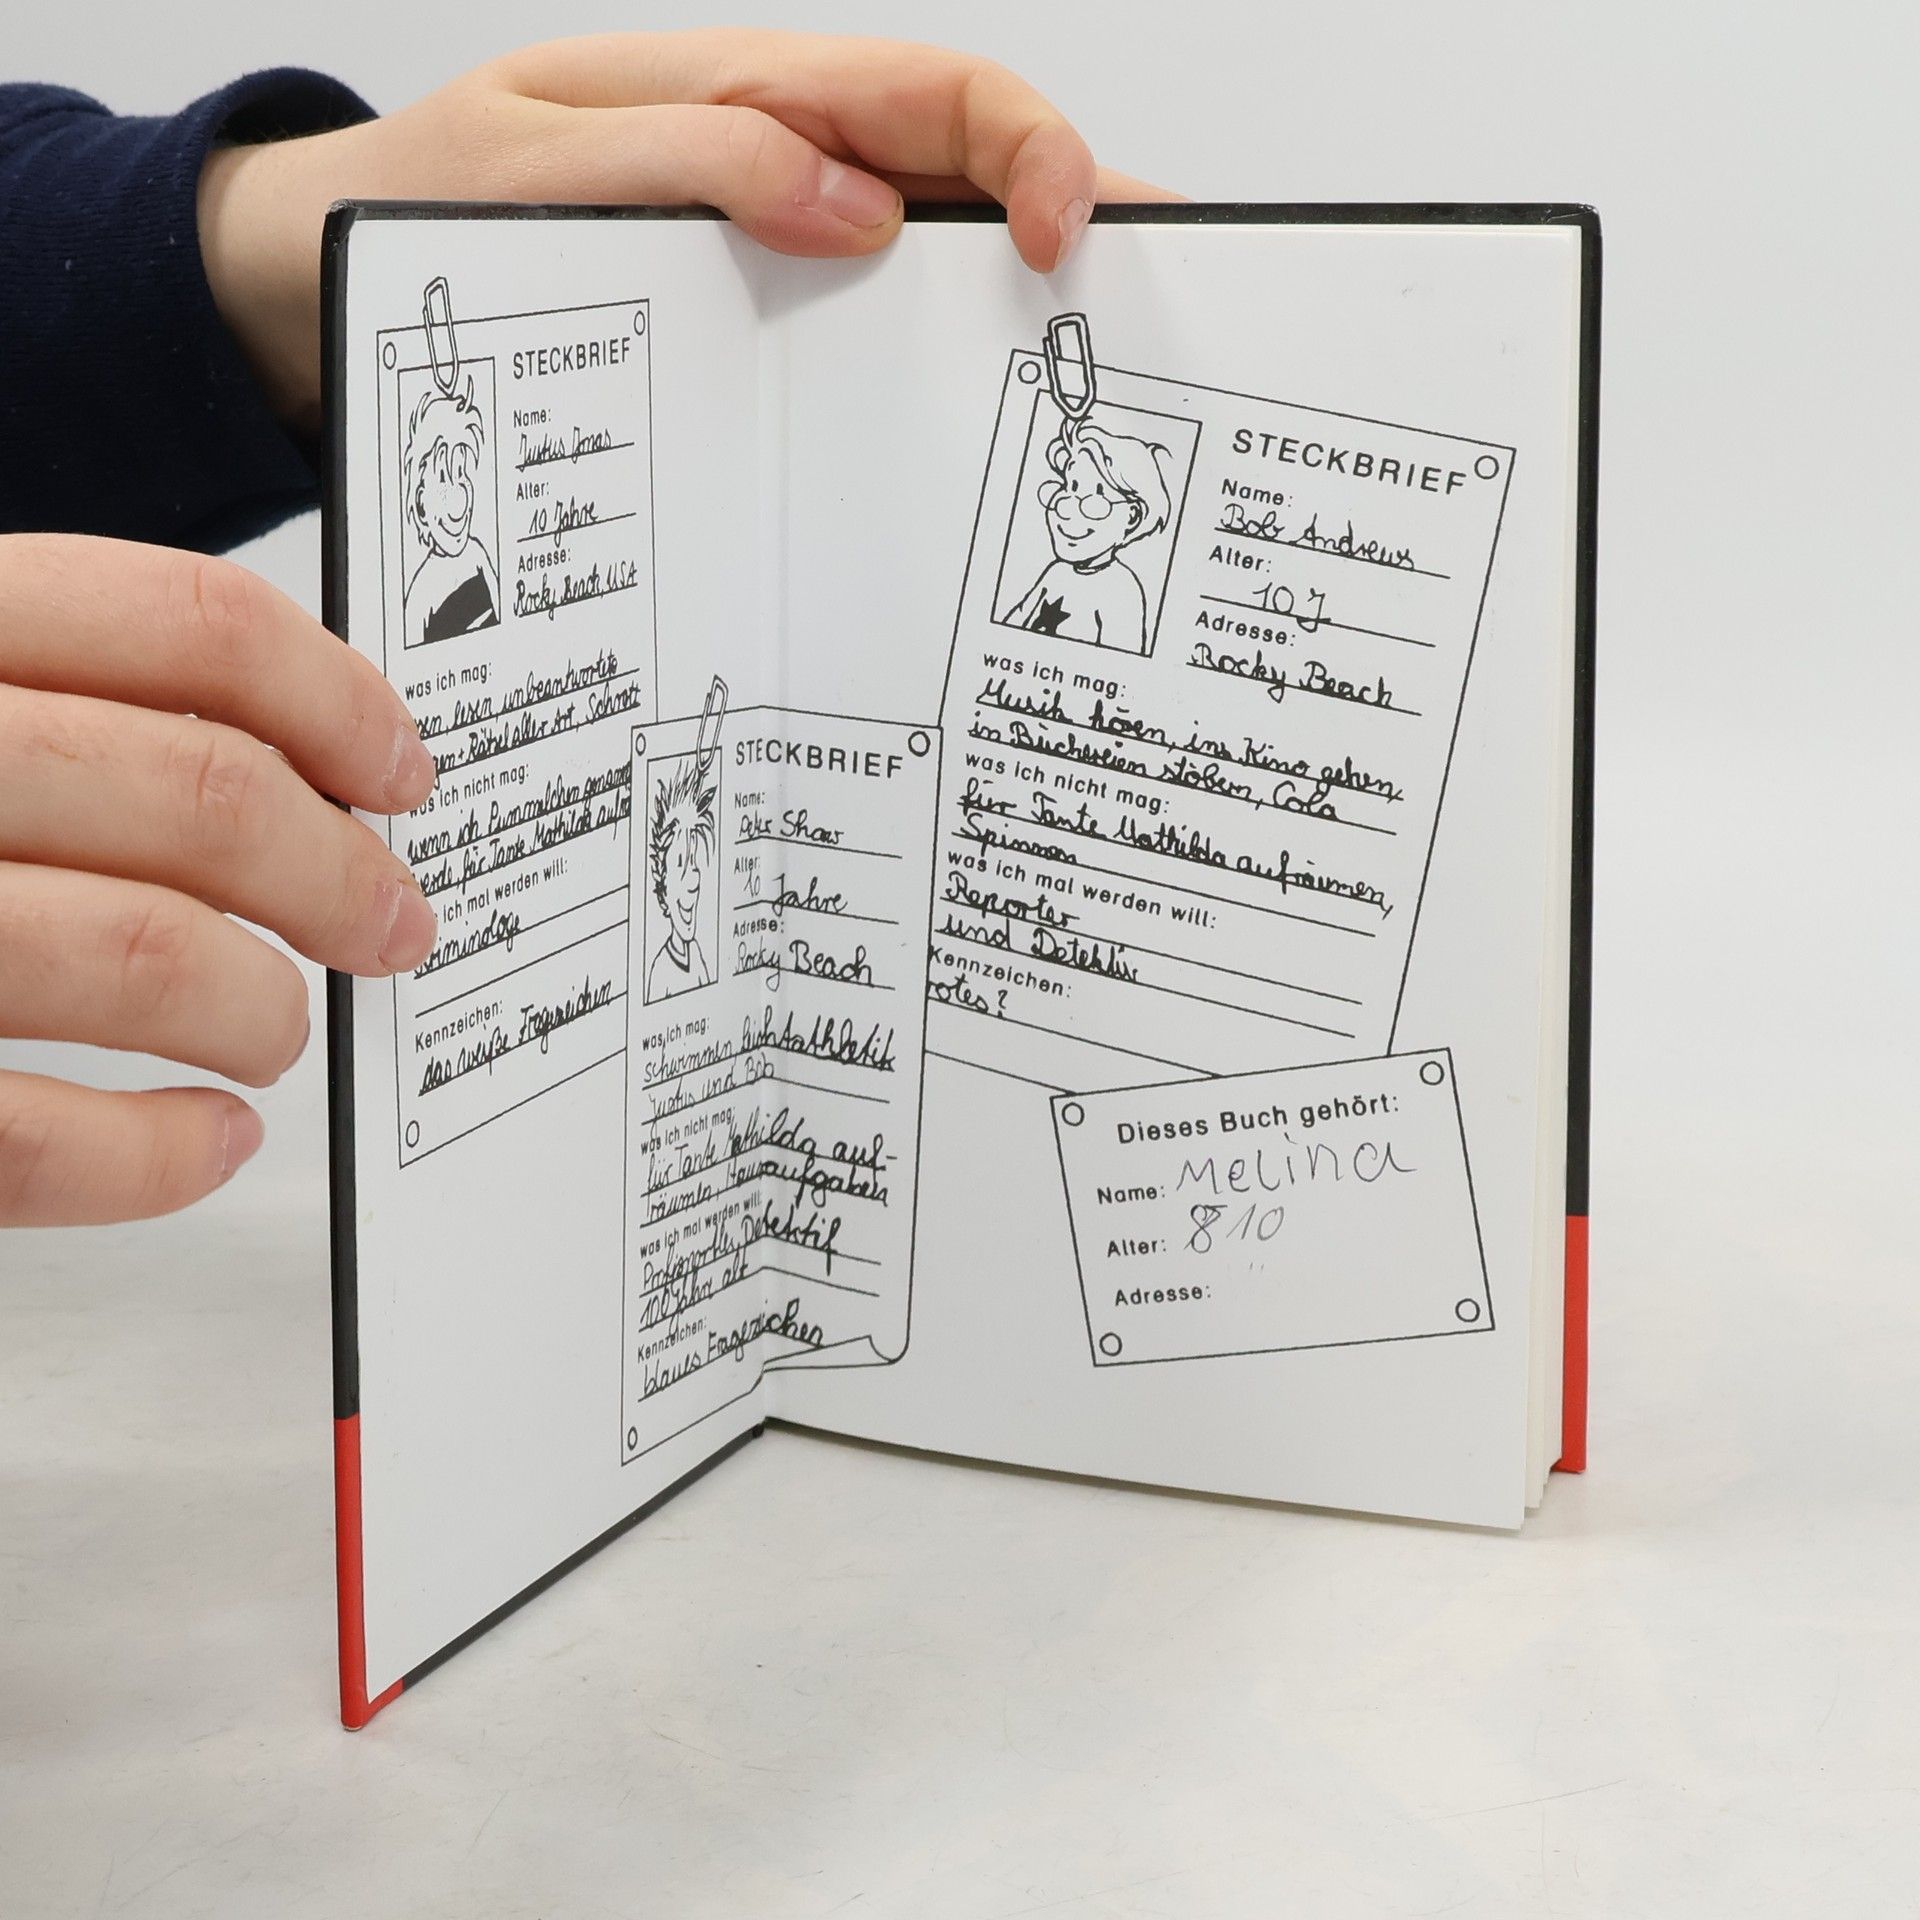 STECKBRIEF
Name:
Justus Jonas
Alter:
10 Jahre
Adresse:
Rocky Beach, USA
was ich mag:
lesen, unbeantwortete
Rätsel aller Art, Schrott
was ich nicht mag:
wenn ich Pummelchen genannt
werde, für Tante Mathilda
ich mal werden will:
Kriminologe
Kennzeichen:
das weiße Fragezeichen
STECKBRIEF
Name:
Peter Shaw
Alter:
10 Jahre
Adresse:
Rocky Beach
was ich mag:
schwimmen, Leichtathletik
Justus und Bob
was ich nicht mag:
für Tante Mathilda auf-
räumen, Hausaufgaben
was ich mal werden will:
Profisportler, Detektif
100 Jahre alt
Kennzeichen:
blaues Fragezeichen
STECKBRIEF
Name:
Bob Andrews
Alter:
10 J
Adresse:
Rocky Beach
was ich mag:
Musik hören, ins Kino gehen,
in Büchereien stöbern, Cola
was ich nicht mag:
für Tante Mathilda aufräumen,
Spinnen
was ich mal werden will:
Reporter
und Detektiv
Kennzeichen:
rotes ?
Dieses Buch gehört:
Name: Melina
Alter: 810
Adresse: